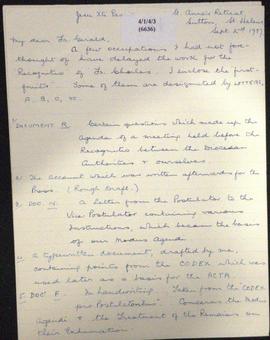 Jesu Xti Pas
4/1/4/3
(6636)
St. Anne's Retreat,
Sutton, St Helens
Sept 2nd 1937
My dear Fr. Gerald,
A few occupations I had not fore-
thought of have delayed the work for the
Recognitio of Fr. Charles. I enclose the first-
fruits. Some of them are designated by LETTERS,
A, B, C, etc.
DOCUMENT R. Certain questions which made up the
Agenda of a meeting held before the
Recognitio between the Diocesan
Authorities & ourselves.
An account which was written afterwards for the
Press. (Rough Draft.)
DOC. N. A letter from the Postulator to the
Vice Postulator containing various
Instructions, which became the basis
of our Modus Agendi.
A typewritten document, drafted by me,
containing points from the CODEX which was
used later as a basis for the ACTA.
DOC F. In handwriting. Taken from the "CODEX
pro Postulatoribus". Concerns the Modus
Agendi & the Treatment of the Remains on
their Exhumation.